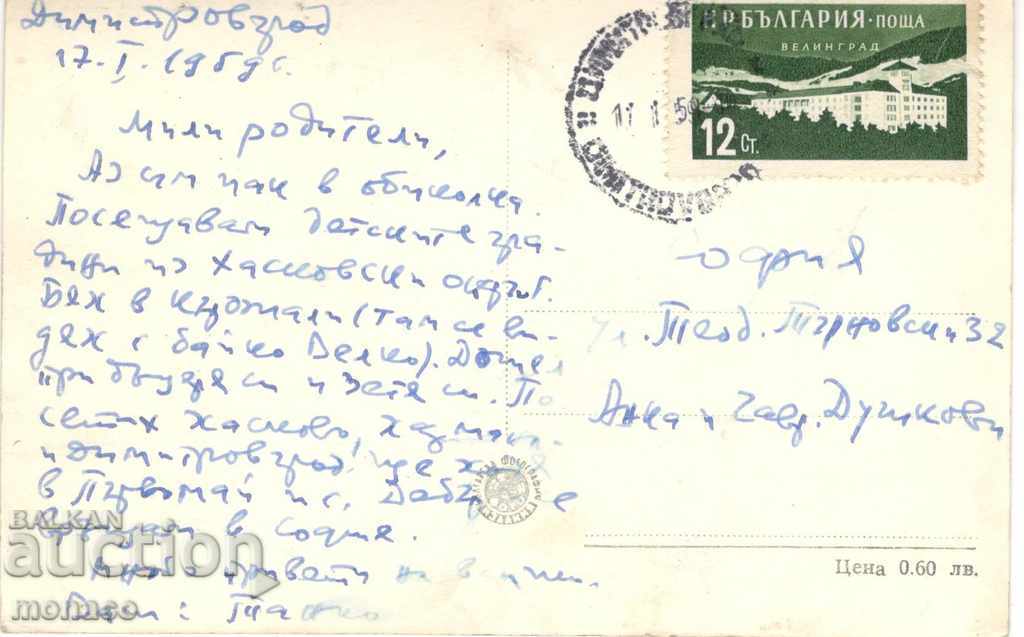 Димитровград
17. I. 1959 г.
Мили родители,
Аз съм пак в обиколка.
Посещавам детските гра-
дини из Хасковски окръг.
Бях в Кърджали (там се ви-
дях с байко Велко).
при и зетя си. По
сетих Хасково,
и Димитровград, ще
в Първомай и с.
в София.
Много привети на всички.
Н.Р. БЪЛГАРИЯ · ПОЩА
ВЕЛИНГРАД
12 СТ.
17 1 59
София
ул. Теод. Търновски 32
Анка и Гавр. Душкови
Цена 0.60 лв.
BALKAN
auction